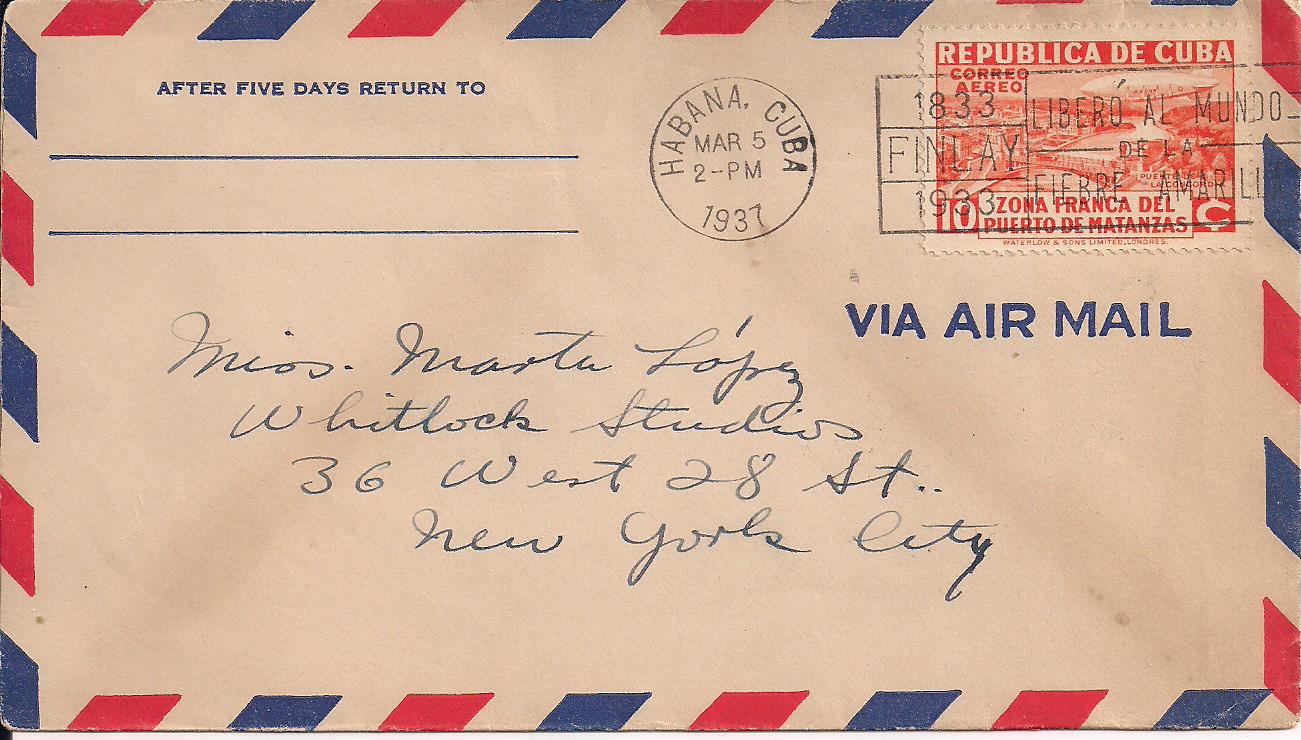 AFTER FIVE DAYS RETURN TO
HABANA, CUBA
MAR 5
2-PM
1937
REPUBLICA DE CUBA
CORREO
AEREO
1833
FINLAY
1933
LIBERÓ AL MUNDO
DE LA
FIEBRE AMARILL
10 ZONA FRANCA DEL
PUERTO DE MATANZAS C
WATERLOW & SONS LIMITED, LONDRES.
VIA AIR MAIL
Miss. Marta López
Whitlock Studios
36 West 28 St..
New York City